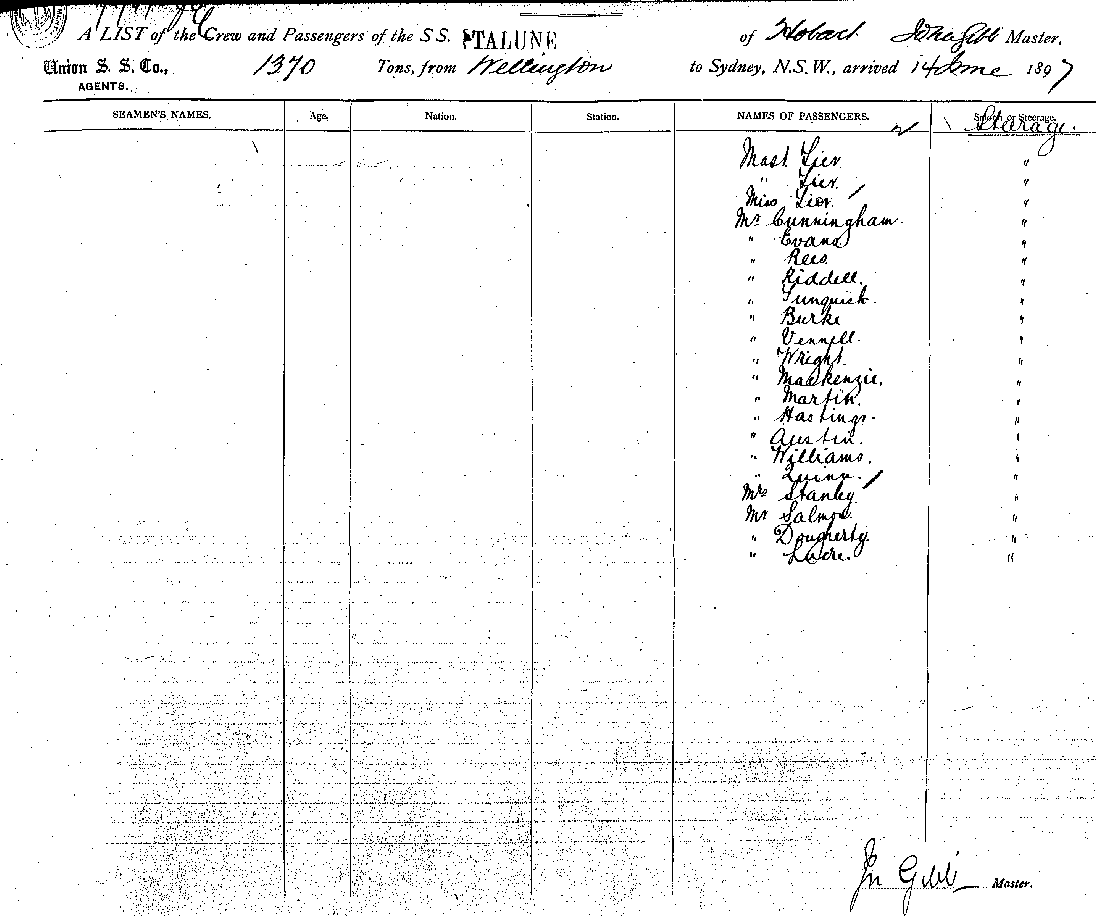 A LIST of the Crew and Passengers of the S S. TALUNE of Hobart Jno Gibb Master,
Union S. S. Co., 1370 Tons, from Wellington to Sydney, N.S.W., arrived 14 June 1897
AGENTS.
SEAMEN'S NAMES. Age. Nation. Station. NAMES OF PASSENGERS. Steerage.
Mast Lier "
" Lier. "
Miss Lier. "
Mr Cunningham. "
" Evans "
" Rees "
" Riddell. "
" "
" Burke "
" Vennell. "
" Wright "
" Mackenzie. "
" Martin. "
" Hastings. "
" Austin. "
" Williams. "
" Quinn. "
Mrs Stanley "
Mr Salmon "
" Dougherty. "
" "
Jn Gibb Master.